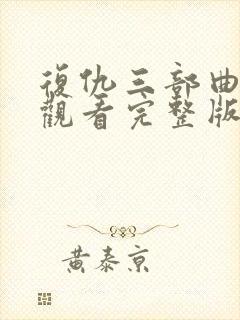 復仇三部曲
觀看完整版
黃泰京